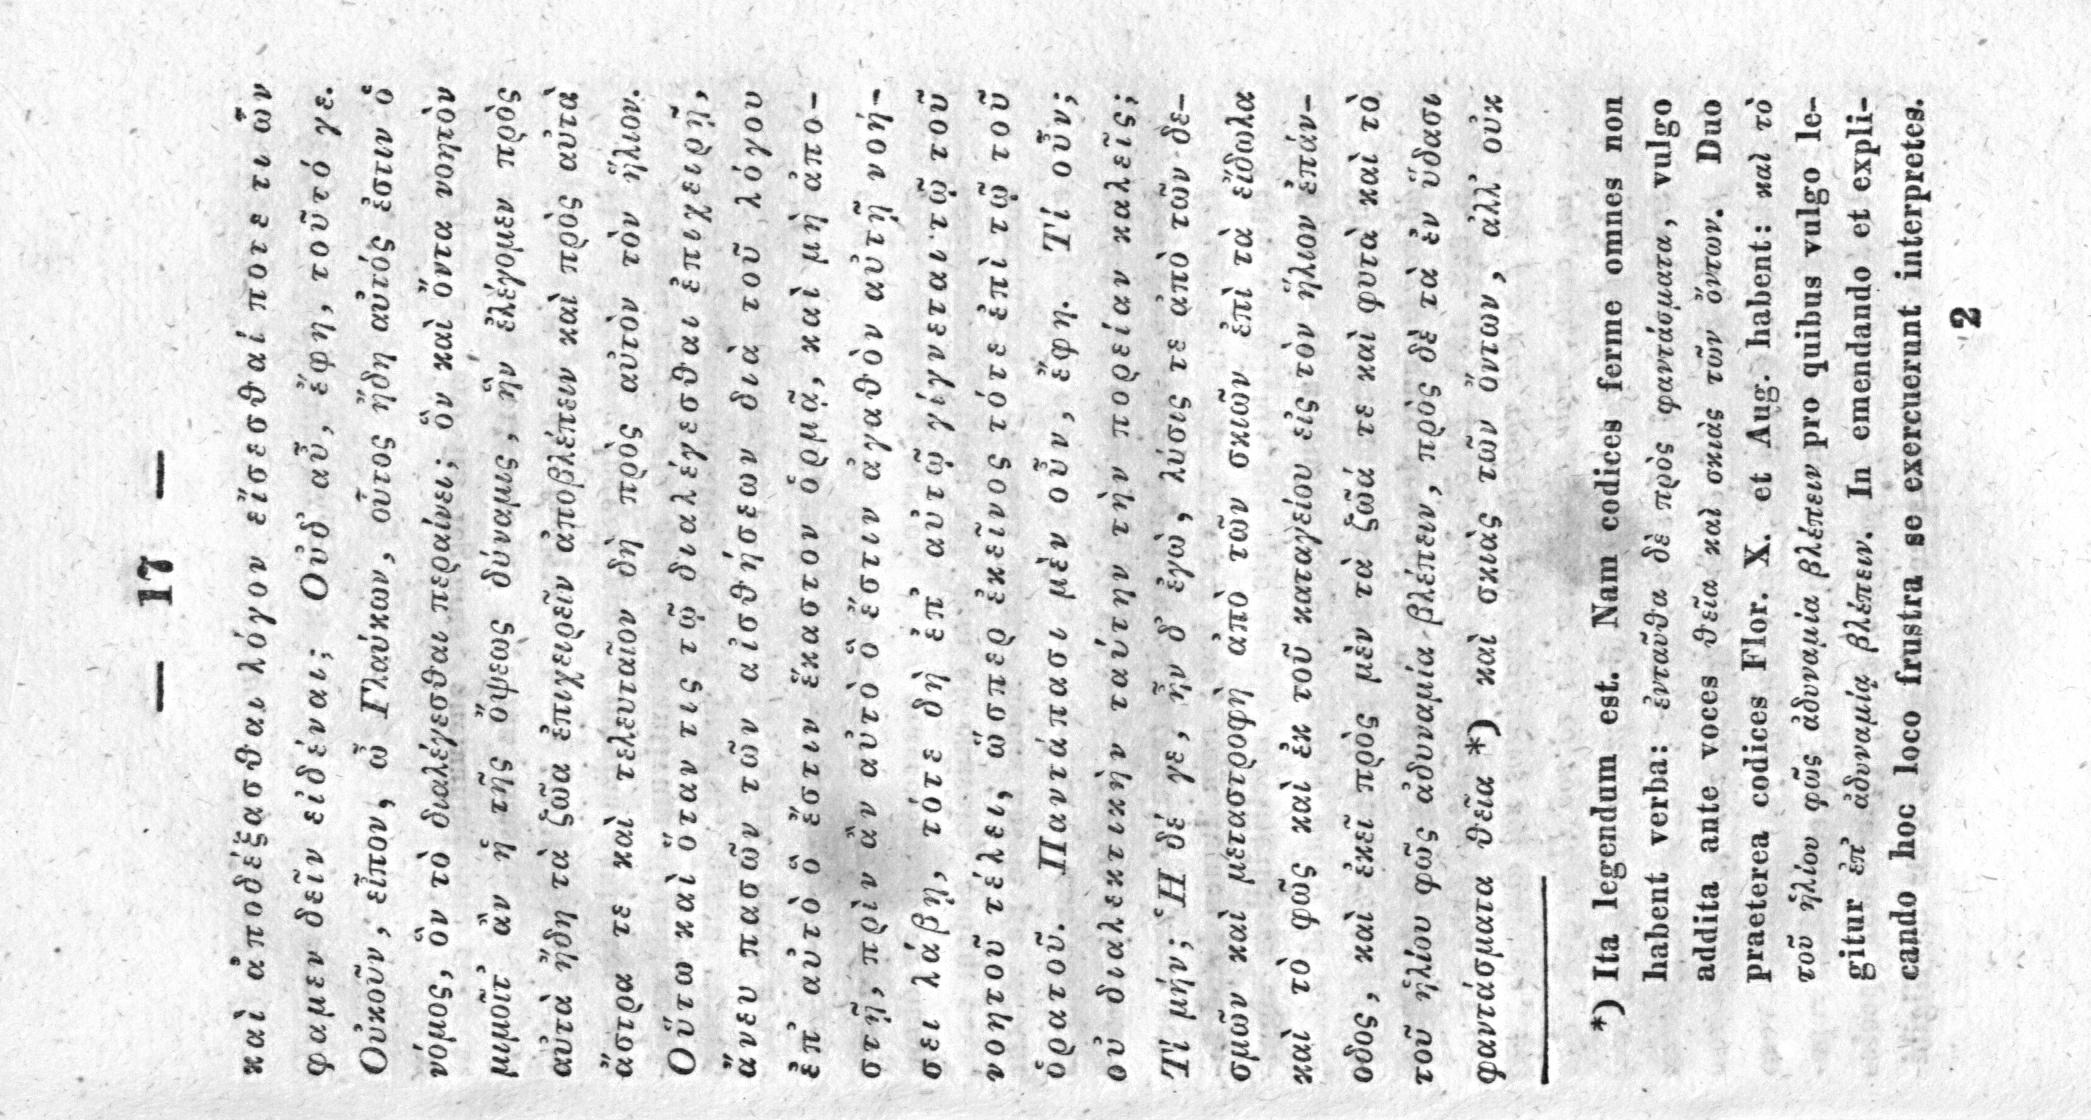 — 17 —
καὶ ἀποδέξασθαι λόγον εἴσεσθαί ποτε τι ὧν
φαμεν δεῖν εἰδέναι; Οὐδ᾽ αὖ, ἔφη, τοῦτό γε.
Οὐκοῦν, εἶπον, ὦ Γλαύκων, οὗτος ἤδη αὐτός ἐστιν ὁ
νόμος, ὃν τὸ διαλέγεσθαι περαίνει; ὃν καὶ ὄντα νοητὸν
μιμοῖτ᾽ ἂν ἡ τῆς ὄψεως δύναμις, ἣν ἐλέγομεν πρὸς
αὐτὰ ἤδη τὰ ζῶα ἐπιχειρεῖν ἀποβλέπειν καὶ πρὸς αὐτὰ
ἄστρα τε καὶ τελευταῖον δὴ πρὸς αὐτὸν τὸν ἥλιον.
Οὕτω καὶ ὅταν τις τῷ διαλέγεσθαι ἐπιχειρῇ,
ἄνευ πασῶν τῶν αἰσθήσεων διὰ τοῦ λόγου
ἐπ᾽ αὐτὸ ὃ ἔστιν ἕκαστον ὁρμᾷ, καὶ μὴ ἀπο-
στῇ, πρὶν ἂν αὐτὸ ὃ ἔστιν ἀγαθὸν αὐτῇ νοή-
σει λάβῃ, τότε δὴ ἐπ᾽ αὐτῷ γίγνεται τῷ τοῦ
νοητοῦ τέλει, ὥσπερ ἐκεῖνος τότε ἐπὶ τῷ τοῦ
ὁρατοῦ. Παντάπασι μὲν οὖν, ἔφη. Τί οὖν;
οὐ διαλεκτικὴν ταύτην τὴν πορείαν καλεῖς;
Τί μήν; Ἡ δέ γε, ἦν δ᾽ ἐγὼ, λύσις τε ἀπὸ τῶν δε-
σμῶν καὶ μεταστροφὴ ἀπὸ τῶν σκιῶν ἐπὶ τὰ εἴδωλα
καὶ τὸ φῶς καὶ ἐκ τοῦ καταγείου εἰς τὸν ἥλιον ἐπάν-
οδος, καὶ ἐκεῖ πρὸς μὲν τὰ ζῶά τε καὶ φυτὰ καὶ τὸ
τοῦ ἡλίου φῶς ἀδυναμία βλέπειν, πρὸς δὲ τὰ ἐν ὕδασι
φαντάσματα θεῖα *) καὶ σκιὰς τῶν ὄντων, ἀλλ᾽ οὐκ
*) Ita legendum est. Nam codices ferme omnes non
habent verba: ἐνταῦθα δὲ πρὸς φαντάσματα, vulgo
addita ante voces θεῖα καὶ σκιὰς τῶν ὄντων. Duo
praeterea codices Flor. X. et Aug. habent: καὶ τὸ
τοῦ ἡλίου φῶς ἀδυναμία βλέπειν pro quibus vulgo le-
gitur ἐπ᾽ ἀδυναμίᾳ βλέπειν. In emendando et expli-
cando hoc loco frustra se exercuerunt interpretes.
2